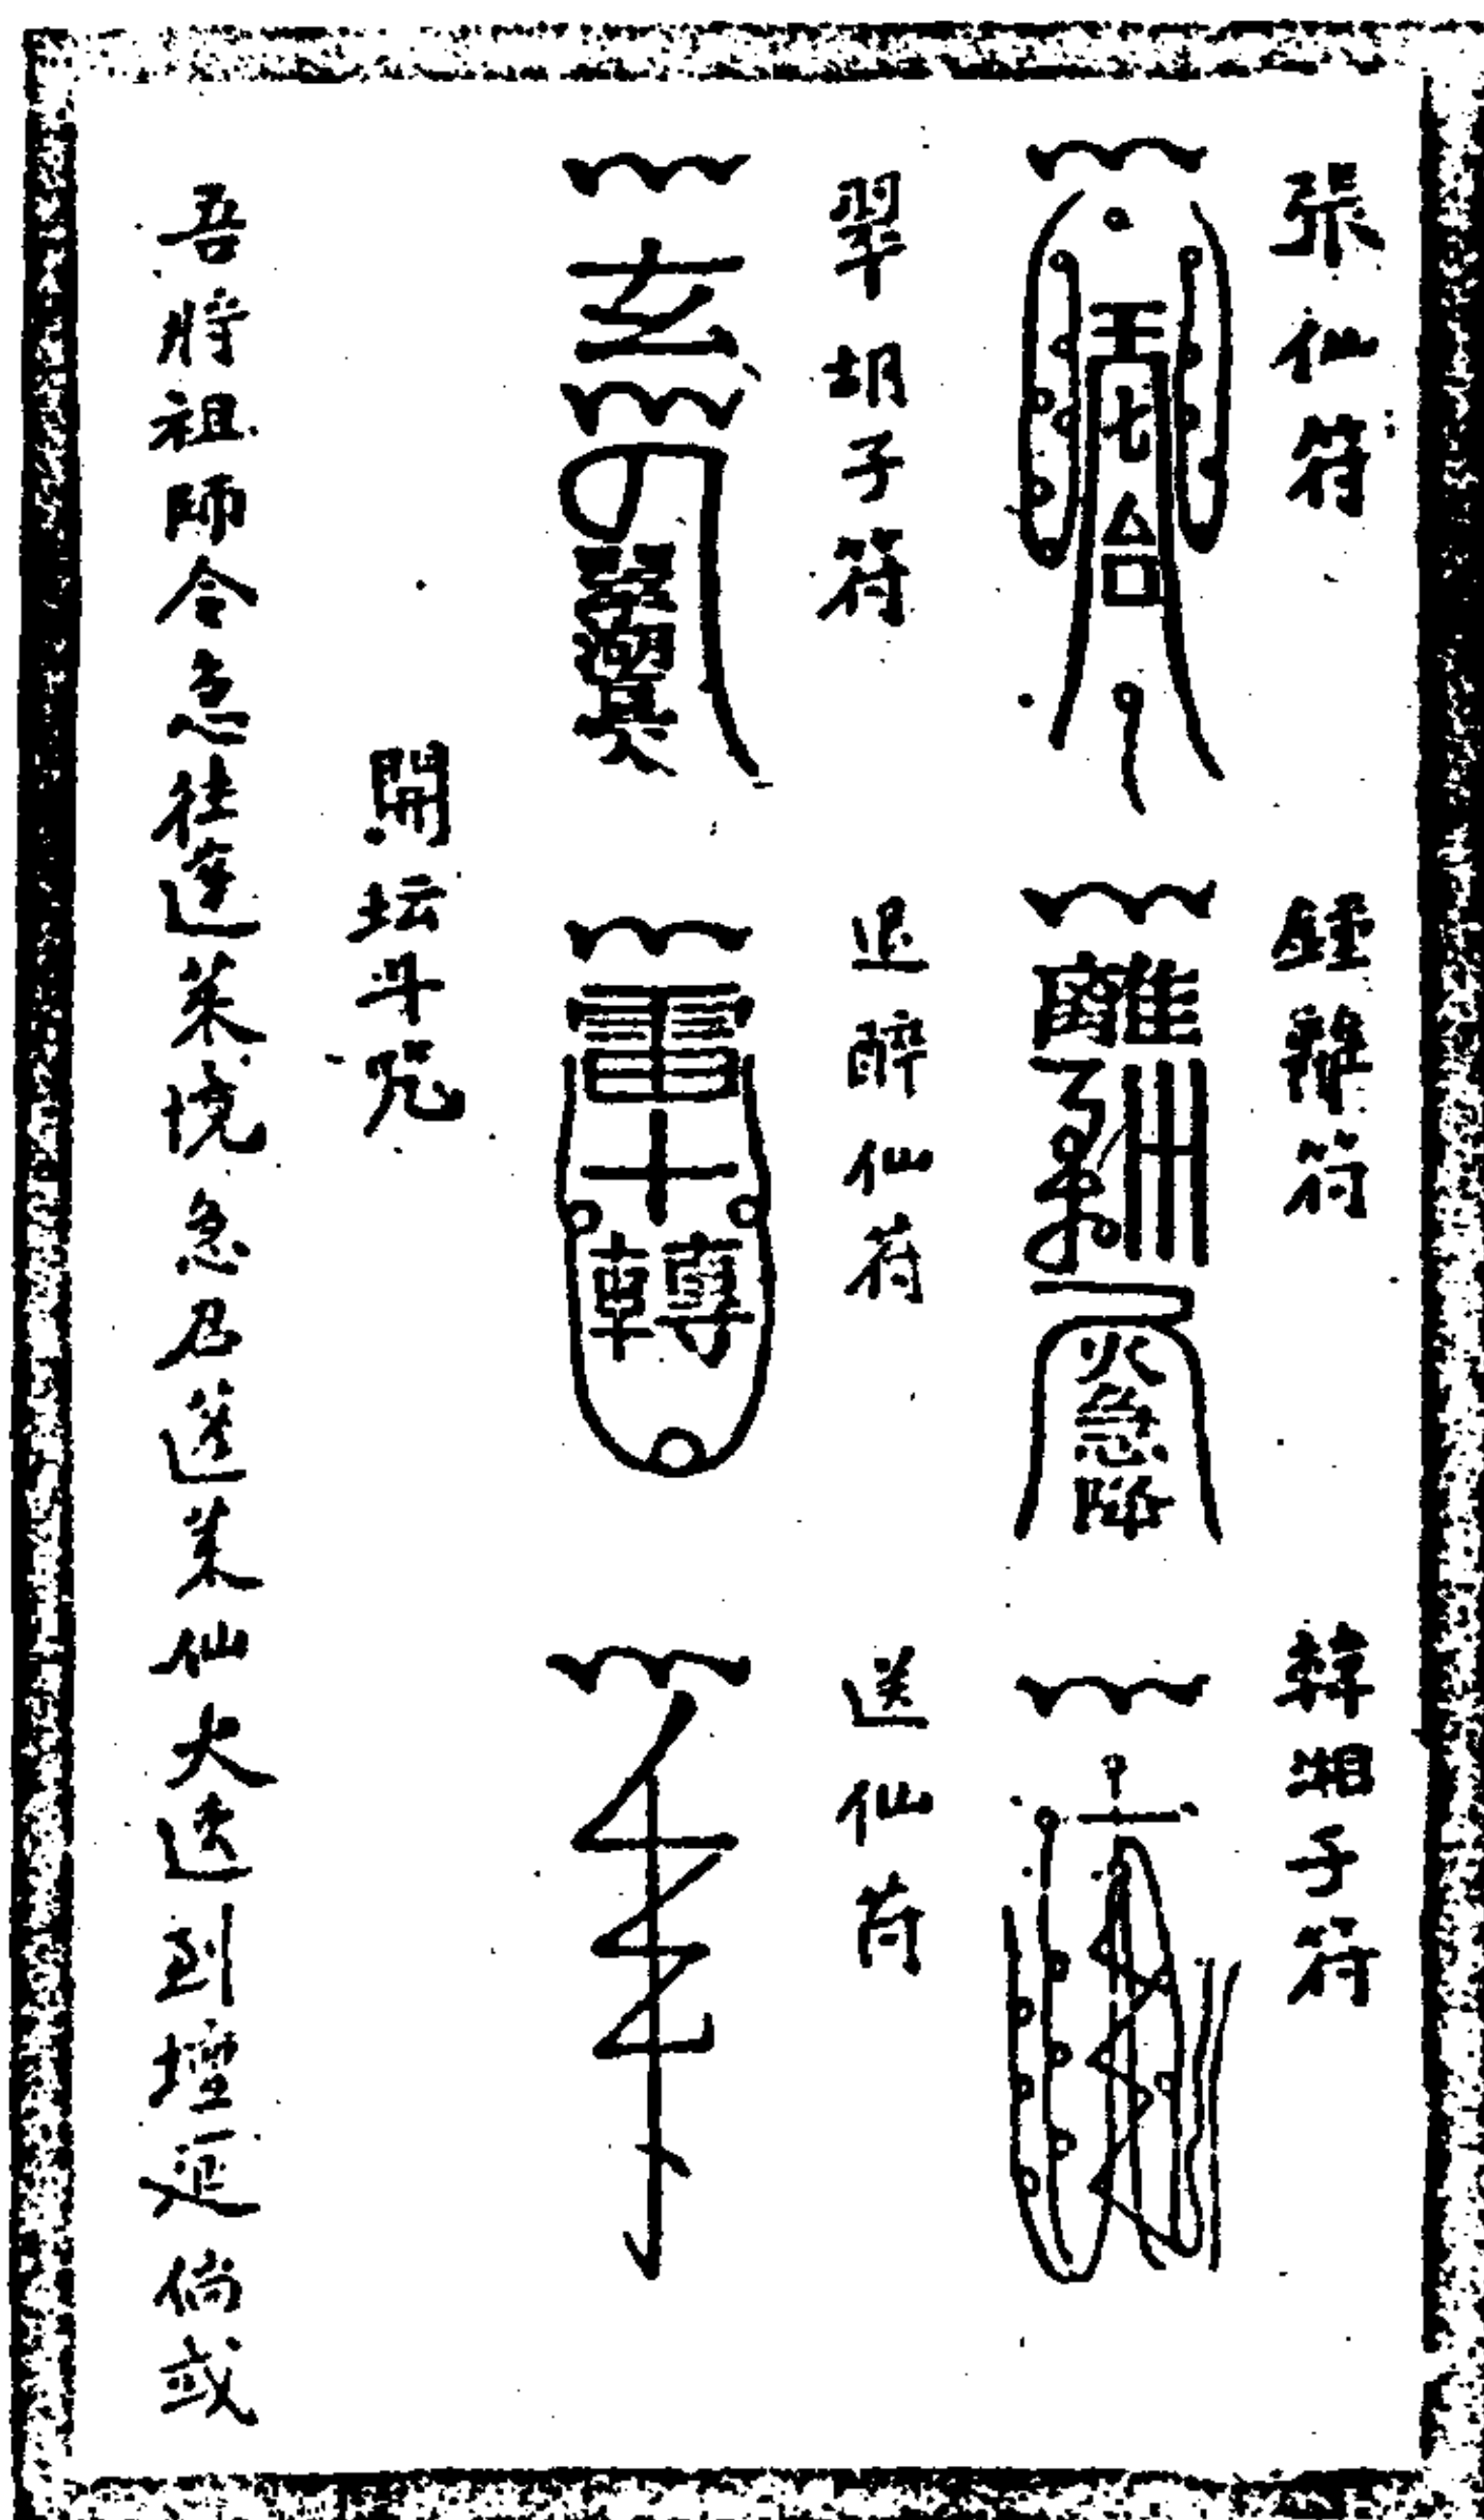 張仙符
鍾離符
韓湘子符
王 七 台
離
火急降
胡子符
退醉仙符
送仙符
玄
雷十轉
開坛斗咒
吾將祖師令急往蓬莱境急召蓬莱仙火速到壇延倘或